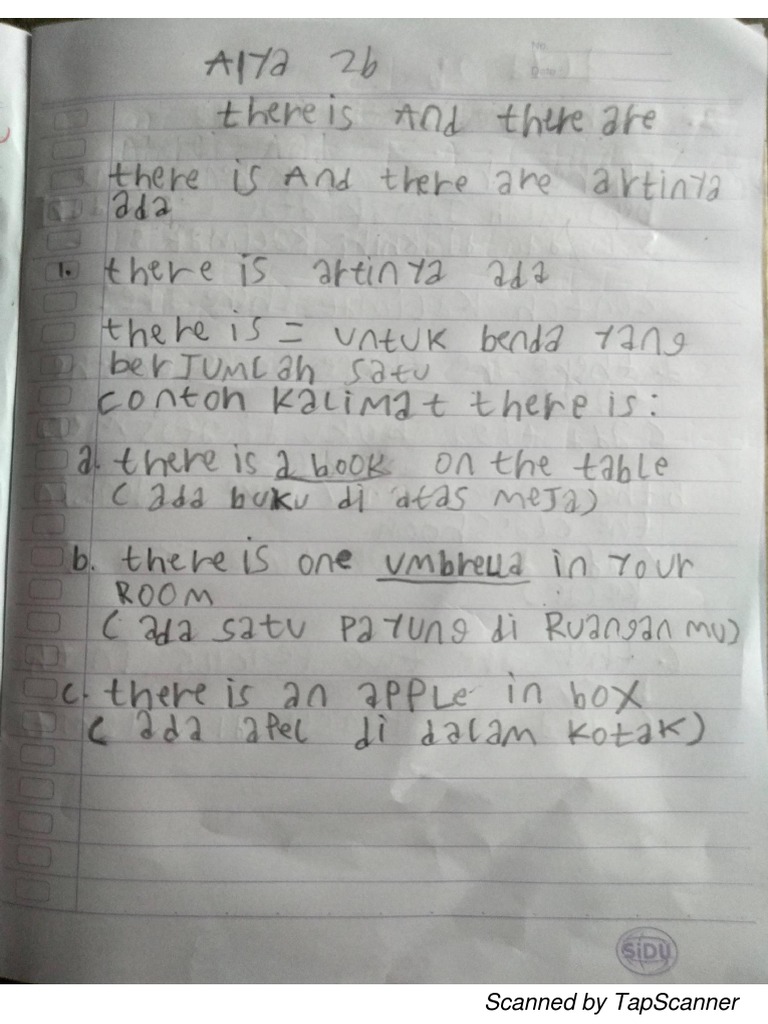 Alya 2b
No
Date
there is And there are
there is And there are artinya
ada
1. there is artinya ada
there is = untuk benda yang
berJUMLah satu
contoh KaLiMat there is:
a. there is a book on the table
( ada buku di atas MeJa)
b. there is one umbrella in your
ROOM
( ada satu payung di Ruangan mu)
c. there is an appLe in box
( ada apel di dalam kotak)
SiDU
Scanned by TapScanner